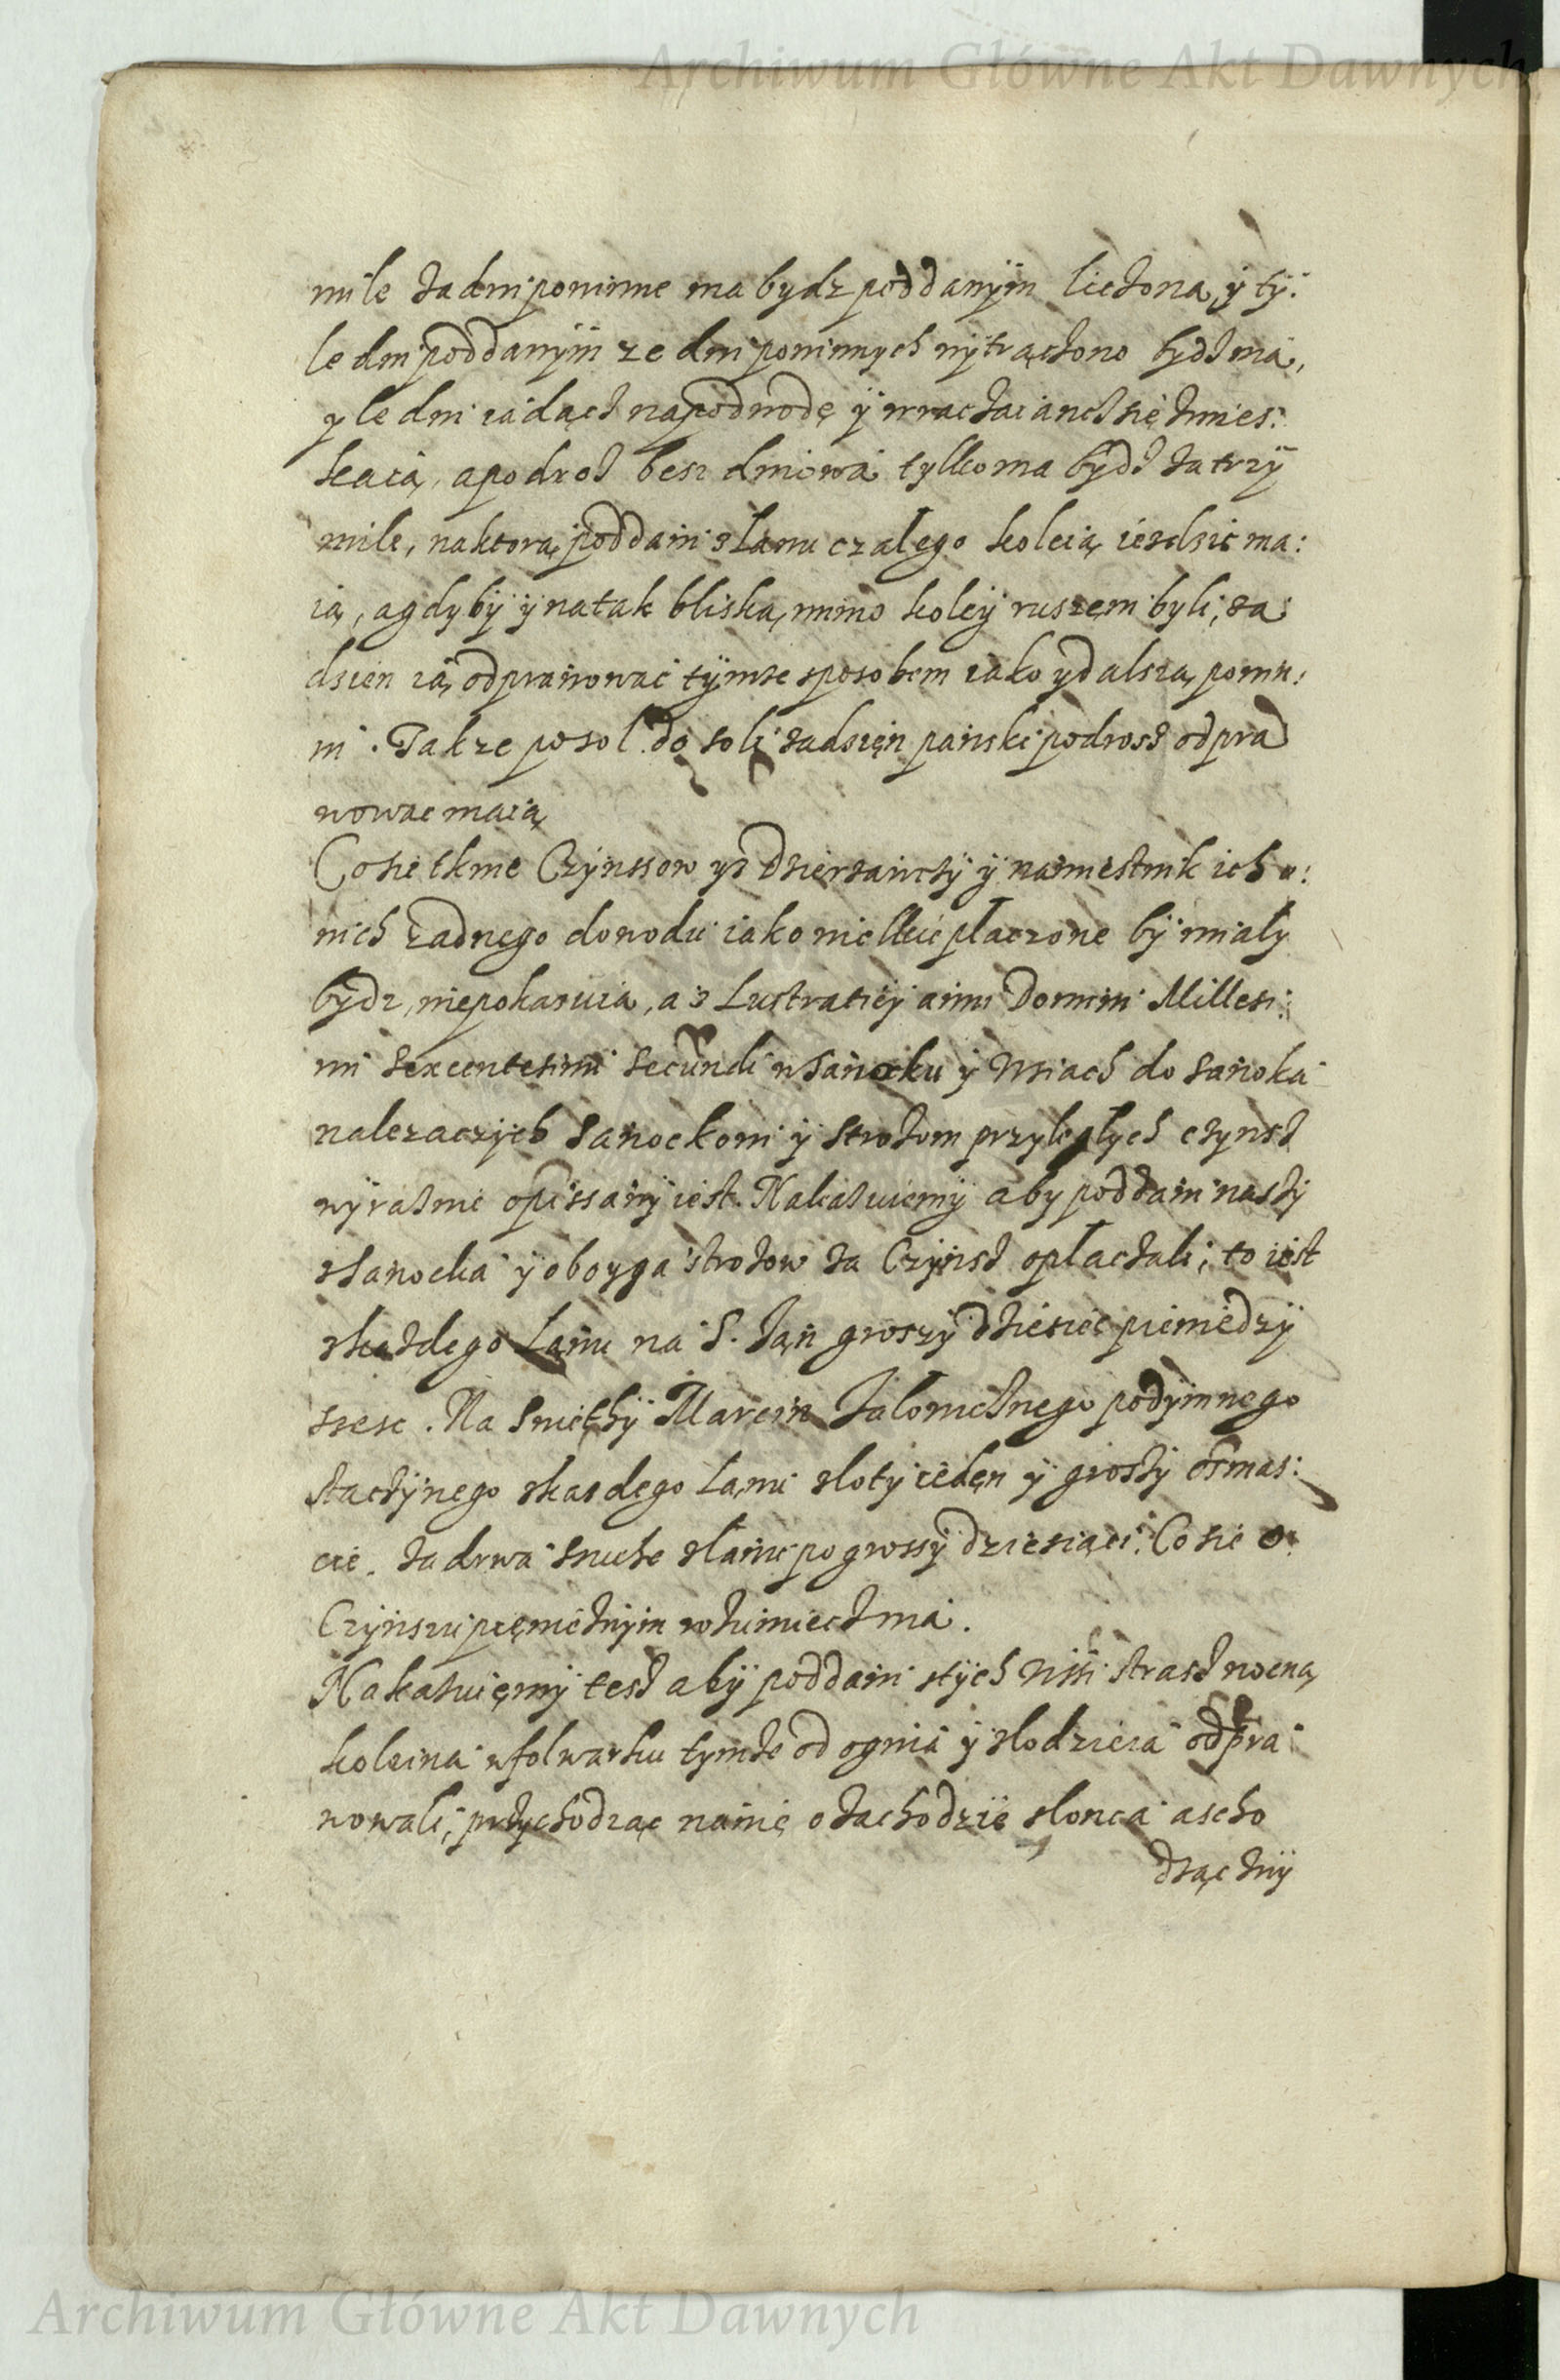 Archiwum Główne Akt Dawnych
mile za dni powinne ma bydz poddanÿm liczona, ÿ tÿ:
le dni poddanÿm ze dni powinnych wÿtrączono bydz ma,
yle dni iadącz na podwodę ÿ wraczaiancz się zmies:
kaią, a podroz besz dniowa tylko ma bÿdz za trzÿ
mile, na ktorą poddani z Lanu czalego koleią iezdzic ma:
ią, a gdyby ÿ na tak bliską, mimo koleÿ ruszeni byli, za
dzien ią odprawowac tÿmze sposobem iako y dalszą powin:
ni. Takze po sol do soli za dzięn panski podrosz odpra
wowac maią
Co się tknie Czÿnssow yz Dzierzawczÿ ÿ namiestnik ich u:
nich zadnego dowodu iako wielkie płaczone bÿ miały
bydz, niepokazuią, a z Lustratieÿ anni Domini Millesi:
mi sexcentesimi secundi w Sanocku ÿ Wsiach do Sanoka
nalezaczÿch Sanockowi ÿ Strozom przyległych czynsz
wÿraznie opissanÿ iest. Nakazuiemÿ aby poddani naszÿ
z Sanocka ÿ oboyga strozow ta Czÿnsz opłaczali, to iest
z kazdego Lanu na S. Jan groszÿ dziesięc pieniedzÿ
szesc. Na Swiętÿ Marcin Jałowicznego podÿmnego
staczÿnego z kazdego Lanu złoty ieden ÿ groszÿ osmas:
cie. Za drwa suche z łanu po grossÿ dziesiąci. Co się o
Czÿnszu pięnieznÿm rozumiecz ma.
Nakazuięmÿ tesz abÿ poddani z tÿch Wssi strasz nocną
koleina w folwarku tymze od ognia ÿ zlodzieia odpra
wowali, przychodząc na nię o zachodzie slonca a scho
dząc znÿ
Archiwum Główne Akt Dawnych